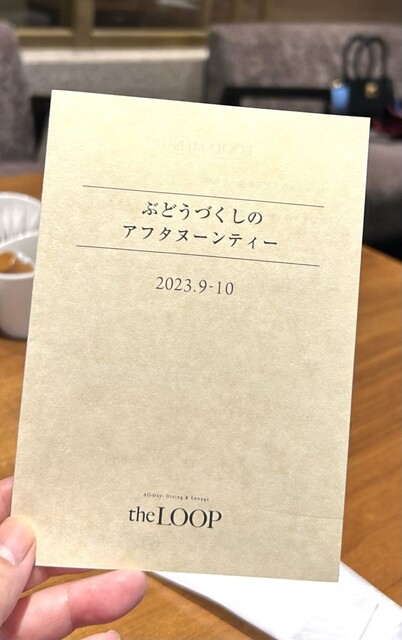 ぶどうづくしの
アフタヌーンティー
2023.9-10
All-Day Dining & Lounge
the LOOP